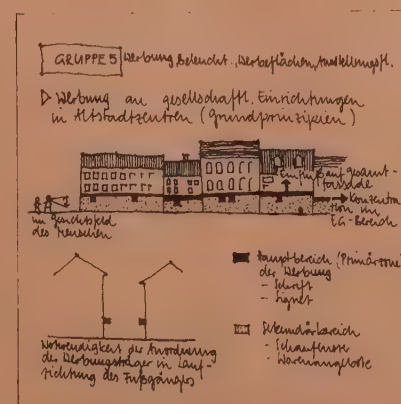 GRUPPE 5 Werbung, Beleucht., Werbeflächen, Ausstellungsfl.
▷ Werbung an gesellschaftl. Einrichtungen
in Altstadtzentren (Grundprinzipien)
Einfluß auf gesamt-
fassade
Konzentra
tion im
EG-Bereich
im Gesichtsfeld
des Menschen
Hauptbereich (Primärzone)
der Werbung
- Schrift
- Signet
Sekundärbereich
- Schaufenster
- Warenangebote
Notwendigkeit der Anordnung
der Werbungsträger in Lauf-
richtung des Fußgängers